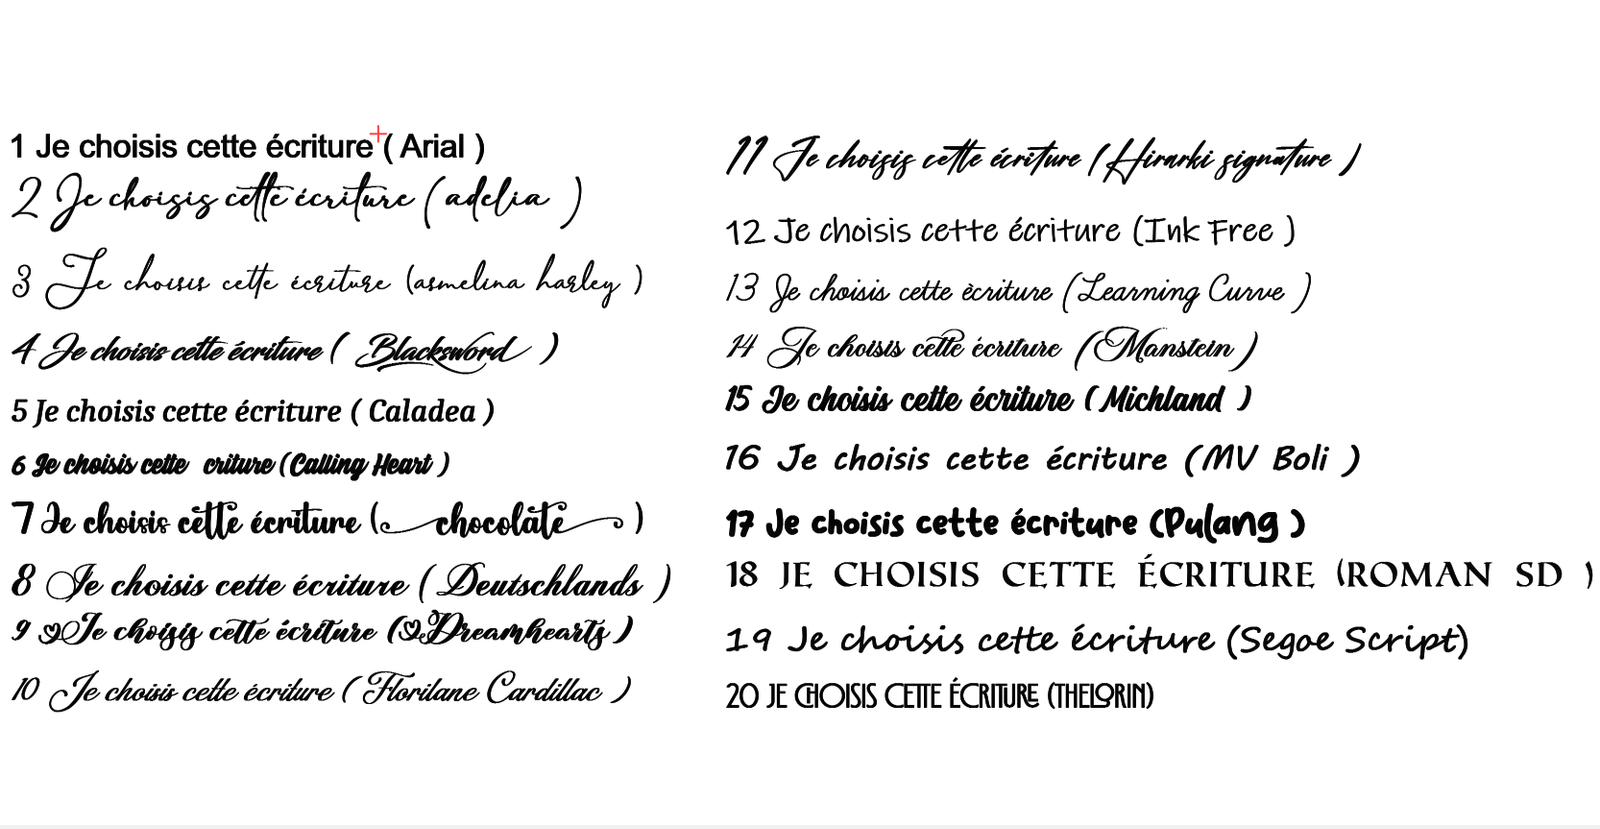 1 Je choisis cette écriture ( Arial )
2 Je choisis cette écriture ( adelia )
3 Je choisis cette écriture (asmelina harley )
4 Je choisis cette écriture ( Blacksword )
5 Je choisis cette écriture ( Caladea )
6 Je choisis cette criture (Calling Heart )
7 Je choisis cette écriture ( chocolate )
8 Je choisis cette écriture ( Deutschlands )
9 Je choisis cette écriture (Dreamhearts )
10 Je choisis cette écriture ( Florilane Cardillac )
11 Je choisis cette écriture (Hirarki signature )
12 Je choisis cette écriture (Ink Free )
13 Je choisis cette ècriture (Learning Curve )
14 Je choisis cette écriture (Manstein )
15 Je choisis cette écriture ( Michland )
16 Je choisis cette écriture (MV Boli )
17 Je choisis cette écriture (Pulang )
18 JE CHOISIS CETTE ÉCRITURE (ROMAN SD )
19 Je choisis cette écriture (Segoe Script)
20 JE CHOISIS CETTE ÉCRITURE (THELORIN)